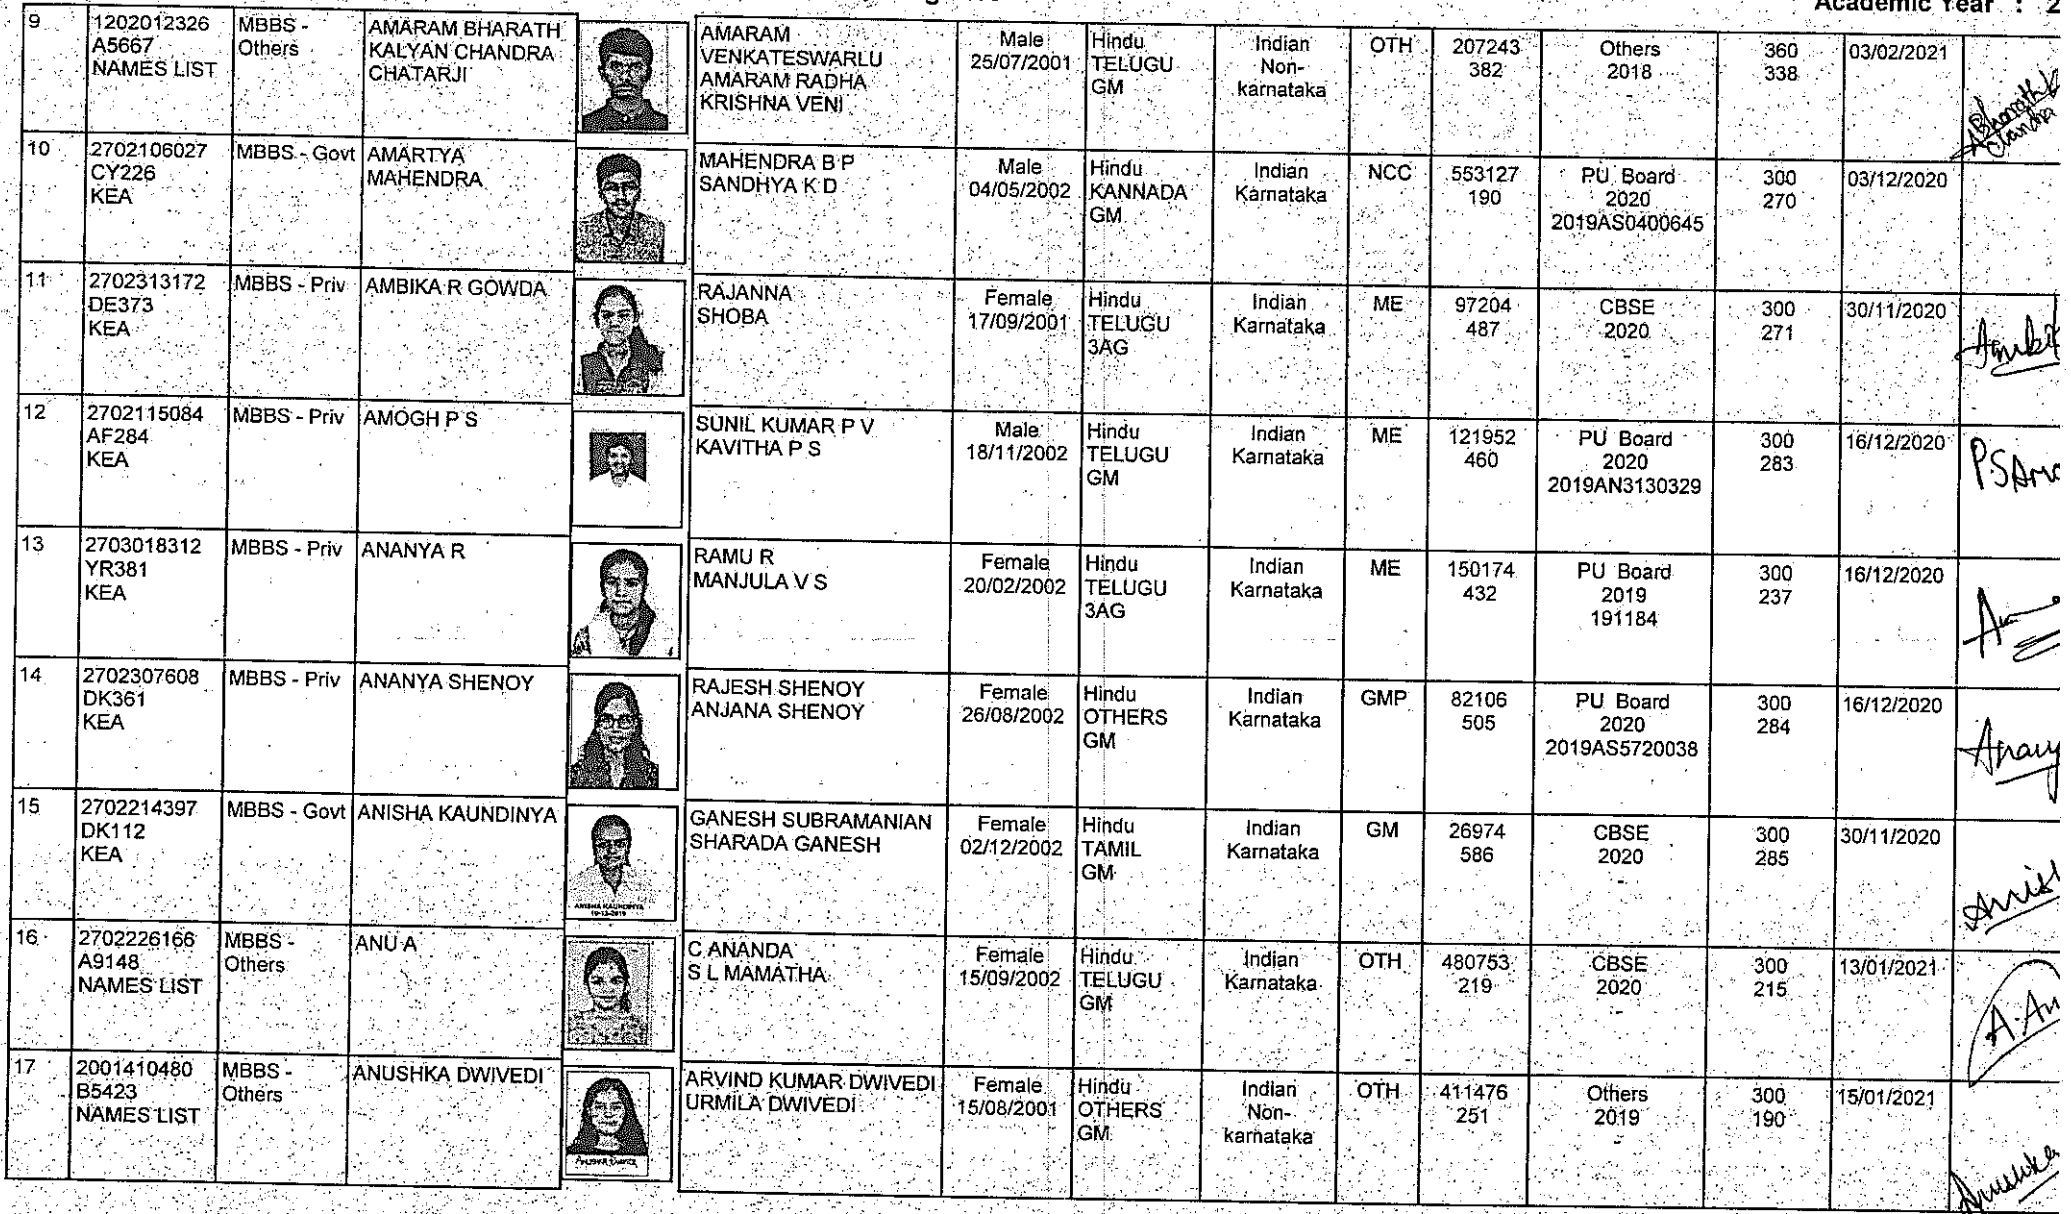 Academic Year : 2
9
1202012326
A5667
NAMES LIST
MBBS -
Others
AMARAM BHARATH
KALYAN CHANDRA
CHATARJI
AMARAM
VENKATESWARLU
AMARAM RADHA
KRISHNA VENI
Male
25/07/2001
Hindu
TELUGU
GM
Indian
Non-
karnataka
OTH
207243
382
Others
2018
-
360
338
03/02/2021
ABharath K
Chandra
10
2702106027
CY226
KEA
MBBS - Govt
AMARTYA
MAHENDRA
MAHENDRA B P
SANDHYA K D
Male
04/05/2002
Hindu
KANNADA
GM
Indian
Karnataka
NCC
553127
190
PU Board
2020
2019AS0400645
300
270
03/12/2020
11
2702313172
DE373
KEA
MBBS - Priv
AMBIKA R GOWDA
RAJANNA
SHOBA
Female
17/09/2001
Hindu
TELUGU
3AG
Indian
Karnataka
ME
97204
487
CBSE
2020
-
300
271
30/11/2020
Ambik
12
2702115084
AF284
KEA
MBBS - Priv
AMOGH P S
SUNIL KUMAR P V
KAVITHA P S
Male
18/11/2002
Hindu
TELUGU
GM
Indian
Karnataka
ME
121952
460
PU Board
2020
2019AN3130329
300
283
16/12/2020
P.S Amo
13
2703018312
YR381
KEA
MBBS - Priv
ANANYA R
RAMU R
MANJULA V S
Female
20/02/2002
Hindu
TELUGU
3AG
Indian
Karnataka
ME
150174
432
PU Board
2019
191184
300
237
16/12/2020
14
2702307608
DK361
KEA
MBBS - Priv
ANANYA SHENOY
RAJESH SHENOY
ANJANA SHENOY
Female
26/08/2002
Hindu
OTHERS
GM
Indian
Karnataka
GMP
82106
505
PU Board
2020
2019AS5720038
300
284
16/12/2020
Anany
15
2702214397
DK112
KEA
MBBS - Govt
ANISHA KAUNDINYA
ANISHA KAUNDINYA
10-12-2019
GANESH SUBRAMANIAN
SHARADA GANESH
Female
02/12/2002
Hindu
TAMIL
GM
Indian
Karnataka
GM
26974
586
CBSE
2020
-
300
285
30/11/2020
Anish
16
2702226166
A9148
NAMES LIST
MBBS -
Others
ANU A
C ANANDA
S L MAMATHA
Female
15/09/2002
Hindu
TELUGU
GM
Indian
Karnataka
OTH
480753
219
CBSE
2020
-
300
215
13/01/2021
A.An
17
2001410480
B5423
NAMES LIST
MBBS -
Others
ANUSHKA DWIVEDI
ANUSHKA DWIVEDI
ARVIND KUMAR DWIVEDI
URMILA DWIVEDI
Female
15/08/2001
Hindu
OTHERS
GM
Indian
Non-
karnataka
OTH
411476
251
Others
2019
-
300
190
15/01/2021
Anushka